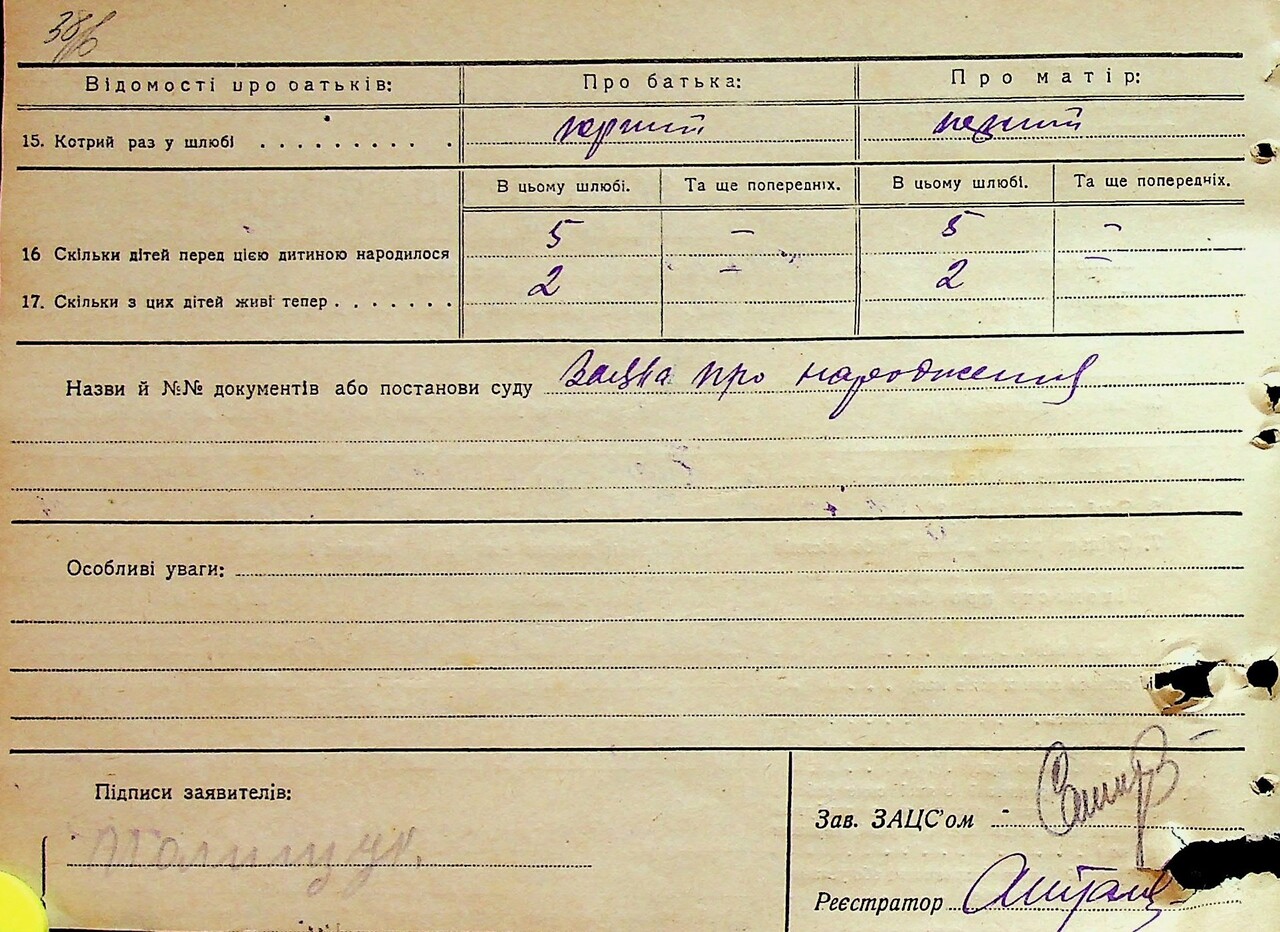 38/б
Відомості про батьків: Про батька: Про матір:
15. Котрий раз у шлюбі . . . . . . . . . . перший перший
В цьому шлюбі. Та ще попередніх. В цьому шлюбі. Та ще попередніх.
16 Скільки дітей перед цією дитиною народилося 5 — 5 —
17. Скільки з цих дітей живі тепер . . . . . . . 2 — 2 —
Назви й №№ документів або постанови суду Заява про народження
Особливі уваги:
Підписи заявителів:
Поліщук.
Зав. ЗАЦС'ом
Реєстратор